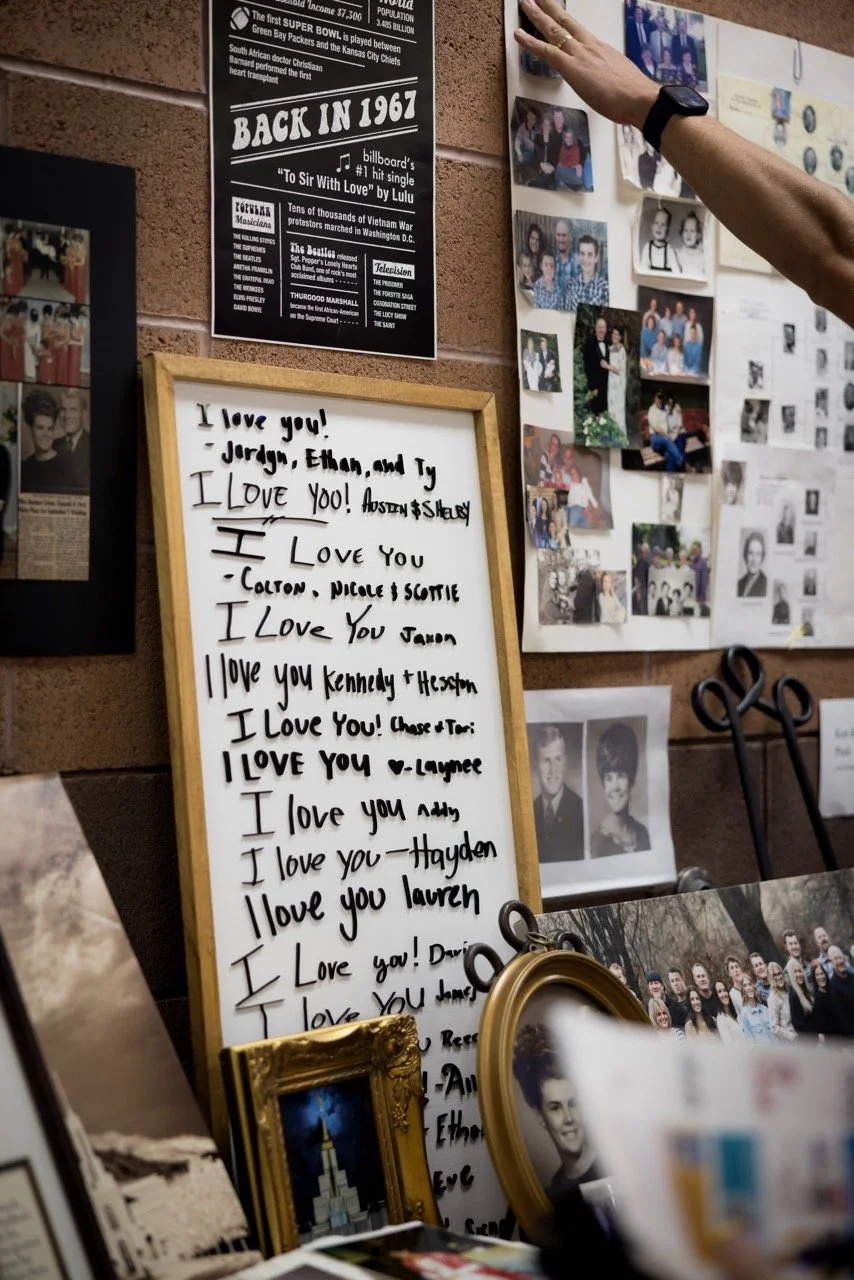 Household Income $7,300
World
POPULATION
3.485 BILLION
The first SUPER BOWL is played between
Green Bay Packers and the Kansas City Chiefs
South African doctor Christiaan
Barnard performed the first
heart transplant
BACK IN 1967
billboard's
#1 hit single
"To Sir With Love" by Lulu
POPULAR
Musicians
THE ROLLING STONES
THE SUPREMES
THE BEATLES
ARETHA FRANKLIN
THE GRATEFUL DEAD
THE MONKEES
ELVIS PRESLEY
DAVID BOWIE
Tens of thousands of Vietnam War
protestors marched in Washington D.C.
The Beatles released
Sgt. Pepper's Lonely Hearts
Club Band, one of rock's most
acclaimed albums
THURGOOD MARSHALL
became the first African-American
on the Supreme Court
Television
THE PRISONER
THE FORSYTE SAGA
CORONATION STREET
THE LUCY SHOW
THE SAINT
I love you!
- Jordyn, Ethan, and Ty
I LOVE YOU! AUSTIN & SHELBY
I LOVE YOU
- COLTON, NICOLE & SCOTTIE
I Love You Jaxon
I love you Kennedy + Hesston
I Love You! Chase & Tori
I LOVE YOU ♥-Laynee
I love you Addy
I love you — Hayden
I love you lauren
I Love you!
I love you